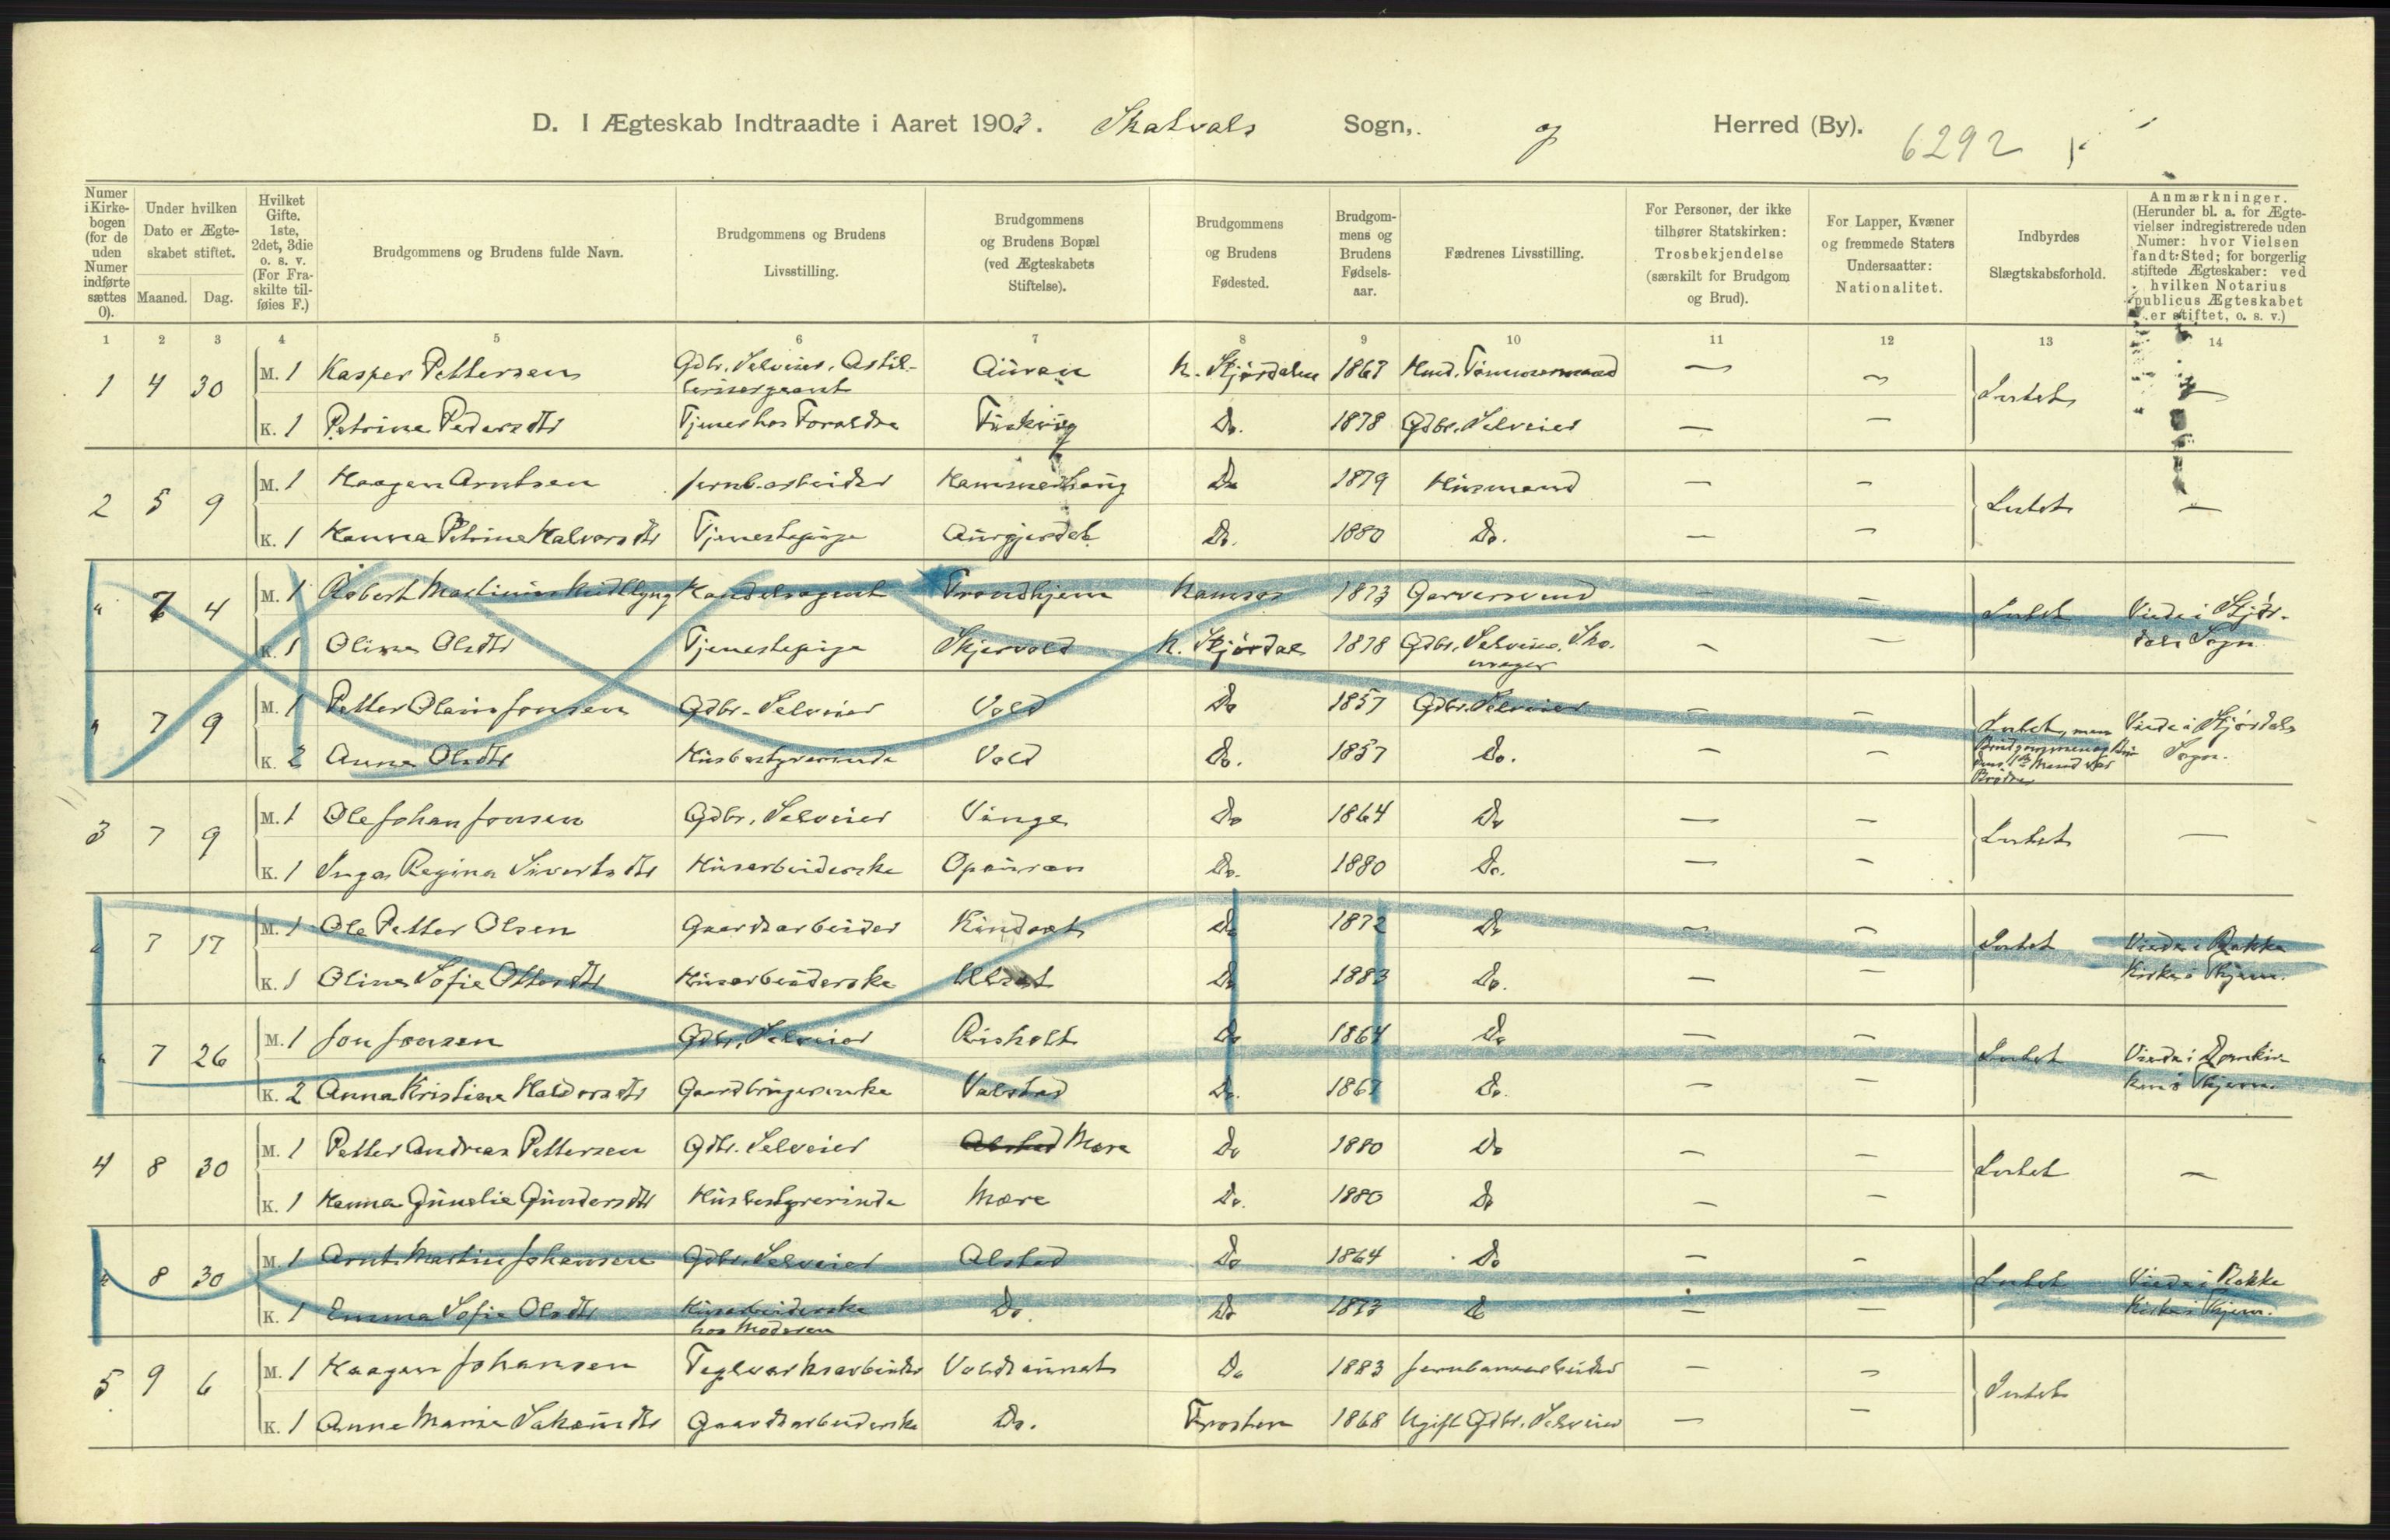 D. I Ægteskab Indtraadte i Aaret 1903. Skatvals Sogn, og Herred (By). 6292
Numer i Kirkebogen (for de uden Numer indførte sættes 0).
Under hvilken Dato er Ægteskabet stiftet.
Maaned. Dag.
Hvilket Gifte. 1ste, 2det, 3die o. s. v. (For Fraskilte tilføies F.)
Brudgommens og Brudens fulde Navn.
Brudgommens og Brudens Livsstilling.
Brudgommens og Brudens Bopæl (ved Ægteskabets Stiftelse).
Brudgommens og Brudens Fødested.
Brudgommens og Brudens Fødselsaar.
Fædrenes Livsstilling.
For Personer, der ikke tilhører Statskirken: Trosbekjendelse (særskilt for Brudgom og Brud).
For Lapper, Kvæner og fremmede Staters Undersaatter: Nationalitet.
Indbyrdes Slægtskabsforhold.
Anmærkninger. (Herunder bl. a. for Ægtevielser indregistrerede uden Numer: hvor Vielsen fandt Sted; for borgerlig stiftede Ægteskaber: ved hvilken Notarius publicus Ægteskabet er stiftet, o. s. v.)
1 2 3 4 5 6 7 8 9 10 11 12 13 14
1 4 30 M. 1 Kasper Pettersen Gdbr. Selveier, Artillerisergeant Auran N. Skjørdalen 1867 — — Intet —
K. 1 Petrine Pedersdtr Tjener hos Foraldre Fuskvig Do. 1878 Gdbr. Selveier — —
2 5 9 M. 1 Haagen Arntsen Jernb.arbeider Hammerhaug Do 1879 Husmand — — Intet —
K. 1 Hanna Petrine Halvorsdtr Tjenestepige Aurgjerdet Do. 1880 Do. — —
" 7 4 M. 1 Robert Martinius Handelsagent Trondhjem Namsos 1873 Garversvend — — Intet Viede i Skjør-
K. 1 Oline Olsdtr Tjenestepige Skjervold N. Skjørdal 1878 Gdbr. Selveier. Sko- — — dals Sogn
mager
" 7 9 M. 1 Petter Olaus Jonsen Gdbr. Selveier Vold Do 1857 Gdbr. Selveier — — Intet, men Viede i Skjørdals
K. 2 Anna Olsdtr Husbestyrerinde Vold Do. 1857 Do. — — Brudgommen og Bru- Sogn.
dens 1ste Mand var
Brødre
3 7 9 M. 1 Ole Johan Jonsen Gdbr. Selveier Vinge Do 1864 Do — — Intet —
K. 1 Inga Regina Sivertsdtr Husarbeiderske Opauran Do. 1880 Do. — —
" 7 17 M. 1 Ole Petter Olsen Gaardsarbeider Kindset Do 1872 Do — — Intet Viede i Bakke
K. 1 Oline Sofie Ottersdtr Husarbeiderske Do 1883 Do. — — Kirke i Thjem.
" 7 26 M. 1 Jon Jonsen Gdbr. Selveier Risholt Do 1864 Do — — Intet Viede i Domkir-
K. 2 Anna Kristine Haldorsdtr Gaardbrugerenke Valstad Do. 1867 Do. — — ken i Thjem.
4 8 30 M. 1 Petter Andreas Pettersen Gdbr. Selveier Alstad Mære Do 1880 Do — — Intet —
K. 1 Hanna Gunelie Gundersdtr Husbestyrerinde Mære Do. 1880 Do — —
" 8 30 M. 1 Arnt Martin Johansen Gdbr. Selveier Alstad Do 1864 Do — — Intet Viede i Bakke
K. 1 Emma Sofie Olsdtr Husarbeiderske Do. Do 1873 Do — — Kirke i Thjem.
hos Moderen
5 9 6 M. 1 Haagen Johansen Teglværksarbeider Voldsaunet Do 1883 Jernbanearbeider — — Intet
K. 1 Anne Marie Gaardsarbeiderske Do. Frosten 1868 Ugift Gdbr. Selveier — —